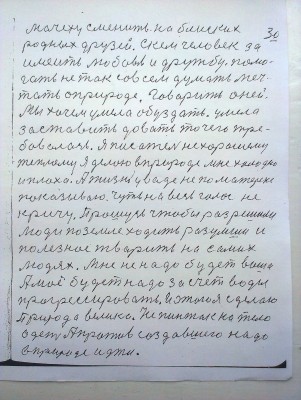 30
мачеху сменить на близких
родных друзей. С кем человек за
имеить любовь и дружбу. помо-
гать не так совсем думать меч-
тать о природе. Говарить о ней.
Мы хочем умела обуздать. умела
заставить довать то чего тре-
бовалось. Я писател не хорошему
теплому Я делою в природе мне холодно
и плохо. А жизни уваде не по матерки
показиваю. чуть на весь голос не
кричу. Прошусь чтобы разрешили
Люди по земле ходить разумши и
полезное тварить на самих
людях. Мне не надо будет ваша
А моё будет надо за счет воды
прогрессировать. Я этого я сделаю
Природа велико. Не пинток на тело
одет А против создавшего надо
в природе идти.